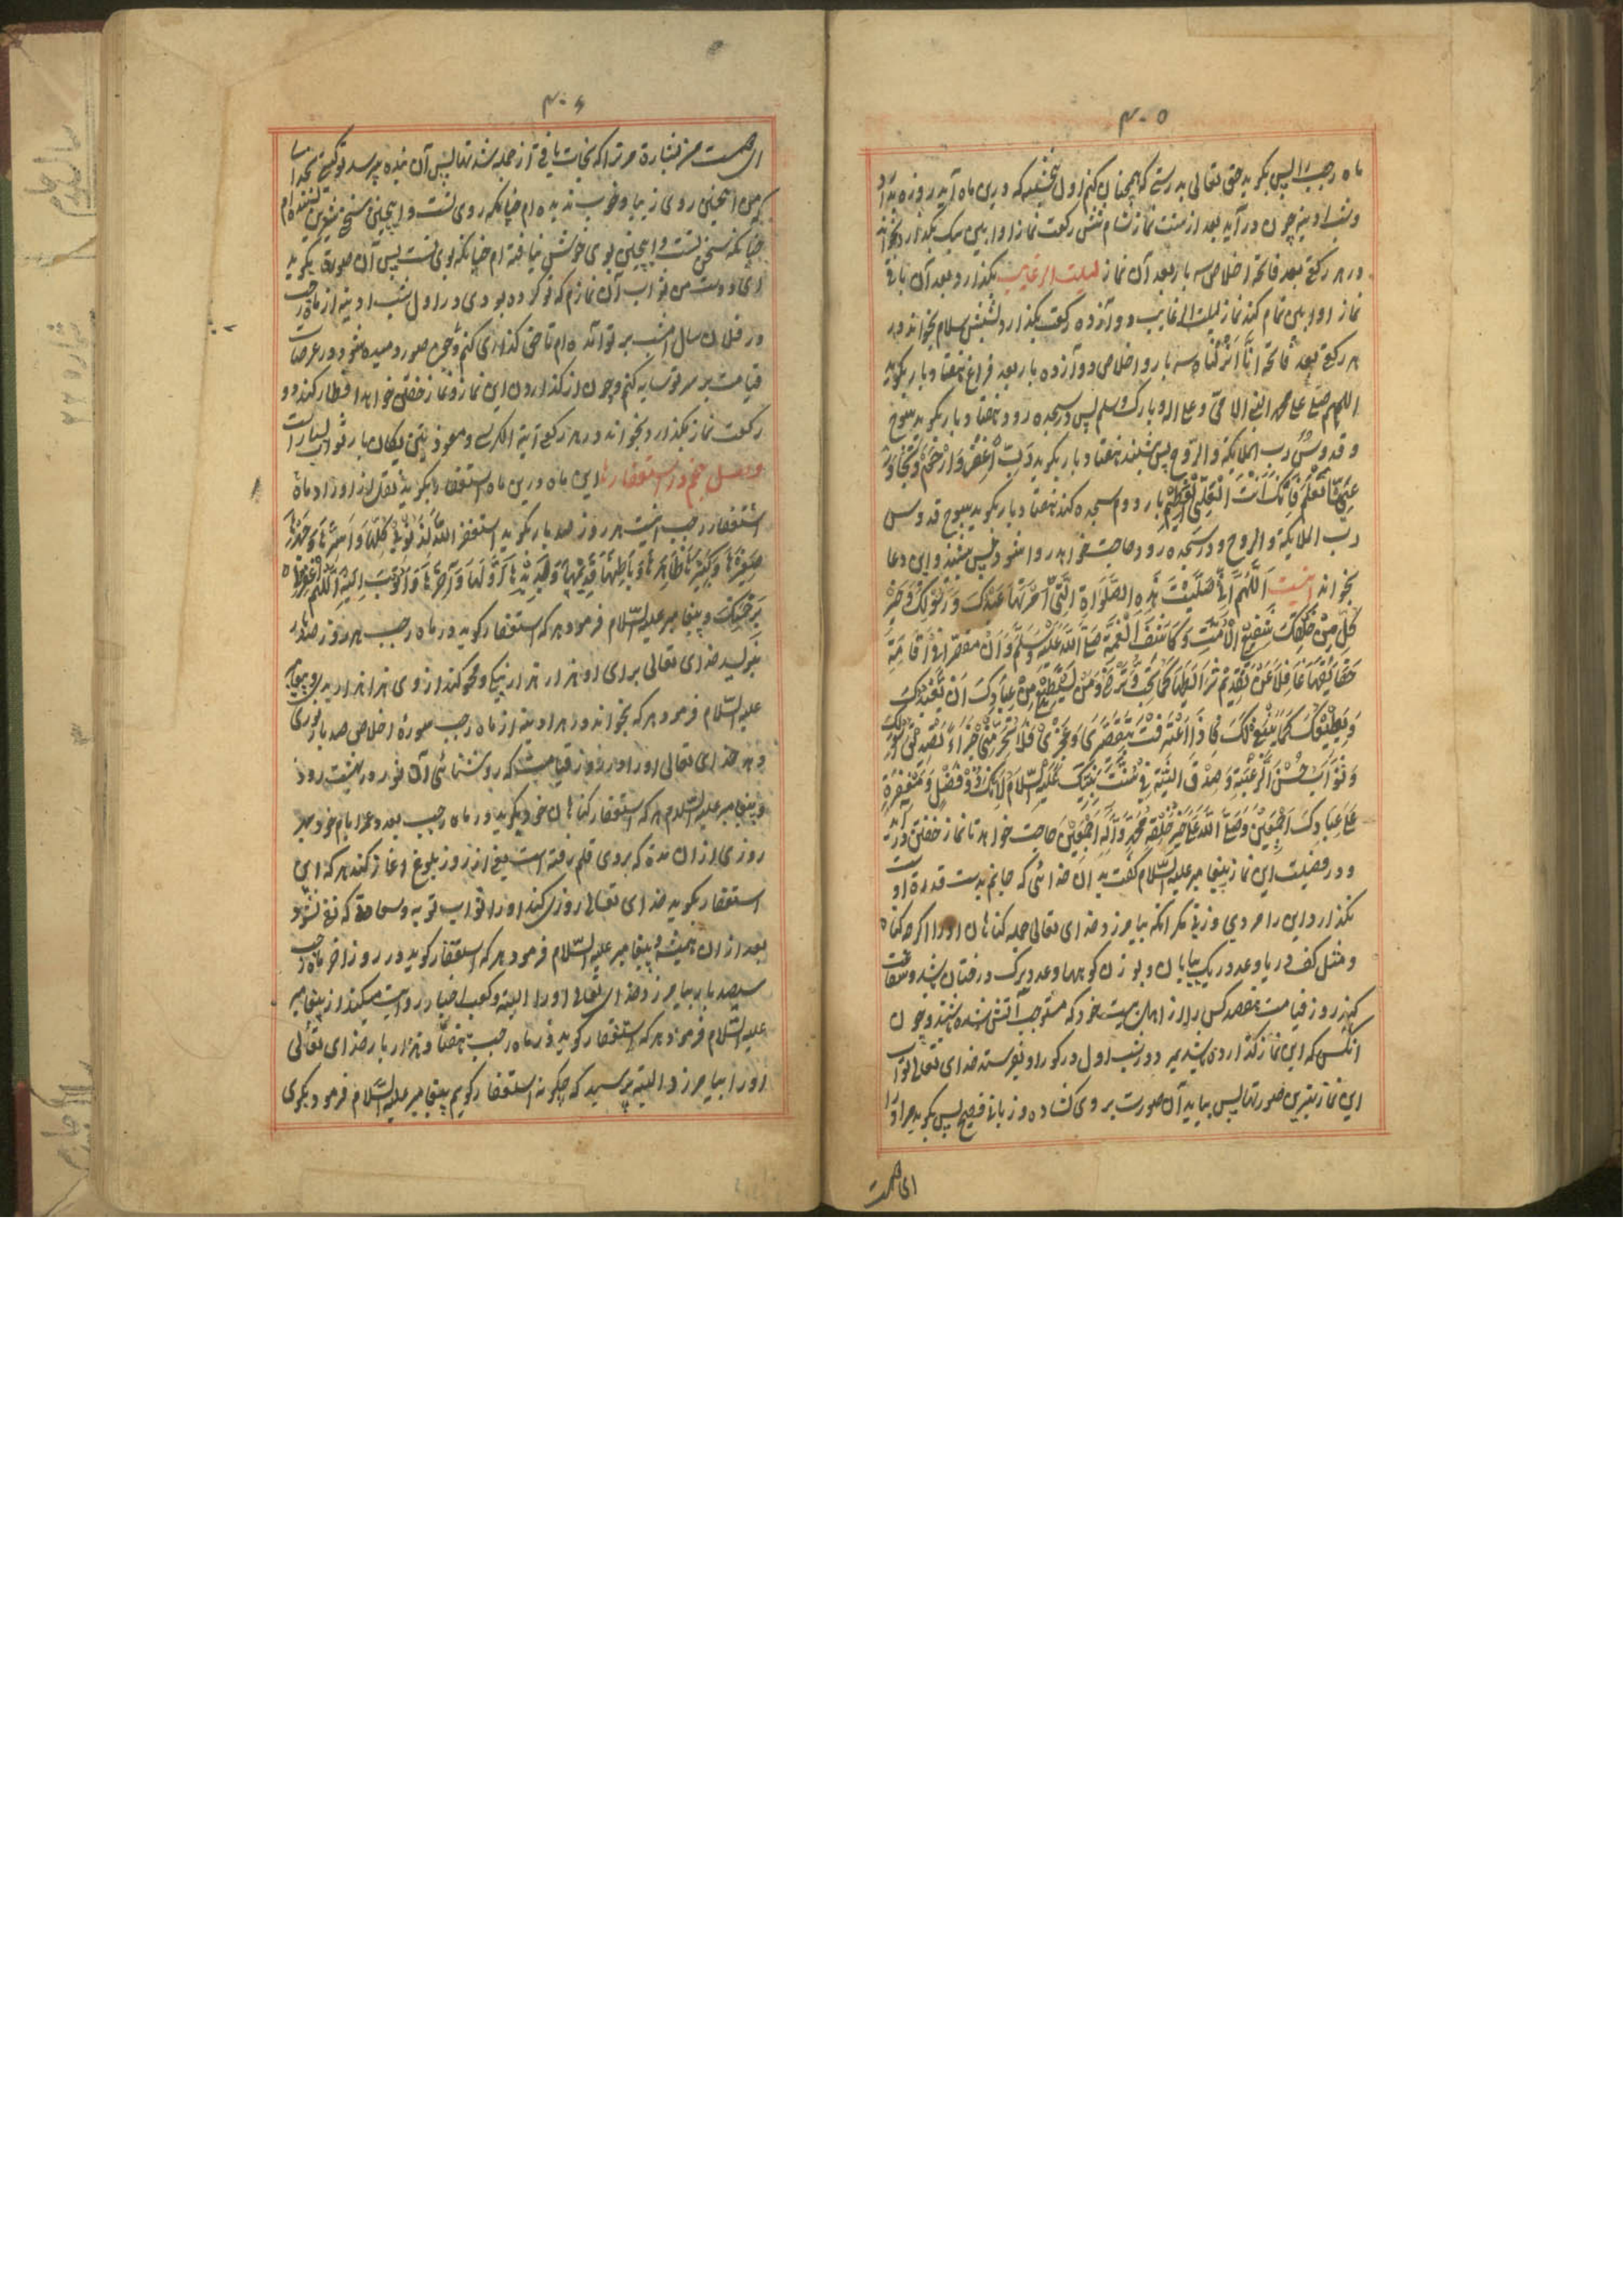 ۴۰۵
ماه رجب را پس بگوید حق تعالی بدرستی که همچنان کنم اول پنجشنبه که درین ماه آید روزه بدارد
و شب ادینه چون در آید بعد از سنت نماز شام شش رکعت نماز اوابین بیک بگذارد بخواند
در هر رکعتی بعد فاتحه اخلاص سه بار بعد آن نماز لیلت الرغایب بگذارد و بعد آن باقی
نماز اوابین تمام کند نماز لیلت الرغایب دوآزده رکعت بگذارد بشش سلام بخواند در
هر رکعتی بعد فاتحه انا انزلناه سه بار و اخلاص دوآزده بار بعد فراغ هفتاد بار بگوید
اللهم صل علی محمد النبی الامی و علی اله و بارک وسلم پس در سجده رود هفتاد بار بگوید سبوح
و قدوس رب الملایکة والروح پس بنشیند هفتاد بار بگوید رب اغفر وارحم و تجاوز
عما تعلم فانک انت العلی العظیم بار دوم سجده کند هفتاد بار بگوید سبوح قدوس
رب الملایکة والروح و در سجده رود حاجت خواهد روا شود پس بنشیند و این دعا
بخواند اینست اللهم انی صلیت هذه الصلواة التی امر بها عبدک و رسولک و خیر
کل من خلقک شفیع الامت و کاشف الغمة صلی الله علیه وسلم و ان مقصر انی اقامة
حقایقها غافلا عن تقدیم شرایطها کما تحب و ترضی و من یستطیع من عبادک ان یعبدک
و یطیعک کما ینبغی لک فاذا اعترفت بتقصیری و عجزی فلا تحرمنی جزاء تصدیقی
و ثواب حسن الرغبة و صدق النیة فی سنت نبیک علیه السلام انک ذو فضل و مغفرة
علی عبادک اجمعین و صلی الله علی خیر خلقه محمد و آله اجمعین حاجت خواهد تا نماز خفتن در آید
و در فضیلت این نماز پیغامبر علیه السلام گفت بدان خدائی که جانم بدست قدرة اوست
بگذارد این را مردی و زنی مگر انکه بیامرزد خدای تعالی جمله گناهان او را اگرچه گناه
و مثل کف دریا و عدد ریک بیابان و بوزن کوهها و عدد برک درختان باشد و شفاعت
کند روز قیامت هفصد کس را از اهل بیت خود که مستوجب آتش شده باشند و چون
انکس که این نماز گذارده باشد بمیرد و در شب اول در گور او بفرستد خدای تعالی ثواب
این نماز بهترین صورتها پس بیاید آن صورت بروی کشاده و زبانی فصیح پس بگوید مر او را
ای همت
۴۰۶
ای همت من بشارة مر ترا که نجات یافتی از جمله شدتها پس آن بنده پرسد تو کیستی بخدای
که من اینچنین روی زیبا و خوب ندیده ام چنانکه روی تست و اینچنین سخن شیرین نشنیده ام
چنانکه سخن تست و اینچنین بوی خوش نیافته ام چنانکه بوی تست پس آن صورة بگوید
ای دوست من ثواب آن نمازم که تو کرده بودی در اول شب ادینه از ماه رجب
در فلان سال امشب بر تو آمده ام تا حق گذاری کنم و چون صور دمیده شود در عرصات
قیامت بر سر تو سایه کنم و چون از گذاردن این نماز و نماز خفتن خواهد افطار کند دو
رکعت نماز بگذارد بخواند در هر رکعتی آیة الکرسی و معوذتین یکان بار ثواب بسیار است
وصل پنجم در استغفارها این ماه درین ماه استغفار بگوید نقل از اوراد ماه
استغفار رجب اینست هر روز صد بار بگوید استغفر الله لذنوبی کلها و اسرها و جهرها
صغیرها و کبیرها ظاهرها و باطنها قدیمها و جدیدها اولها و آخرها و اتوب الیه اللهم اغفر لی
برحمتک و پیغامبر علیه السلام فرمود هر که استغفار گوید در ماه رجب هر روز صد بار
بنویسد خدای تعالی برای او هزار هزار نیکی و محو کند از وی هزار هزار بدی و پیغامبر
علیه السلام فرمود هر که بخواند در هر ادینه از ماه رجب سورة اخلاص صد بار نوری
دهد خدای تعالی او را در روز قیامت که روشنائی آن نور در بهشت رود
و پیغامبر علیه السلام هر که استغفار گناهان خود بگوید در ماه رجب بعدد عمر ایام خود بهر
روزی از آن مدة که بروی قلم رفته است یعنی از روز بلوغ آغاز کند هر که این
استغفار بگوید خدای تعالی روزی کند او را ثواب توبه و سعادة که نقض نشود
بعد از آن همیشه و پیغامبر علیه السلام فرمود هر که استغفار گوید در روز اخر ماه رجب
سیصد بار بیامرزد خدای تعالی او را البته و کعب احبار روایت میکند از پیغامبر
علیه السلام فرمود هر که استغفار گوید در ماه رجب هفتاد هزار بار خدای تعالی
او را بیامرزد البته پرسید که چگونه استغفار گویم پیغامبر علیه السلام فرمود بگوی